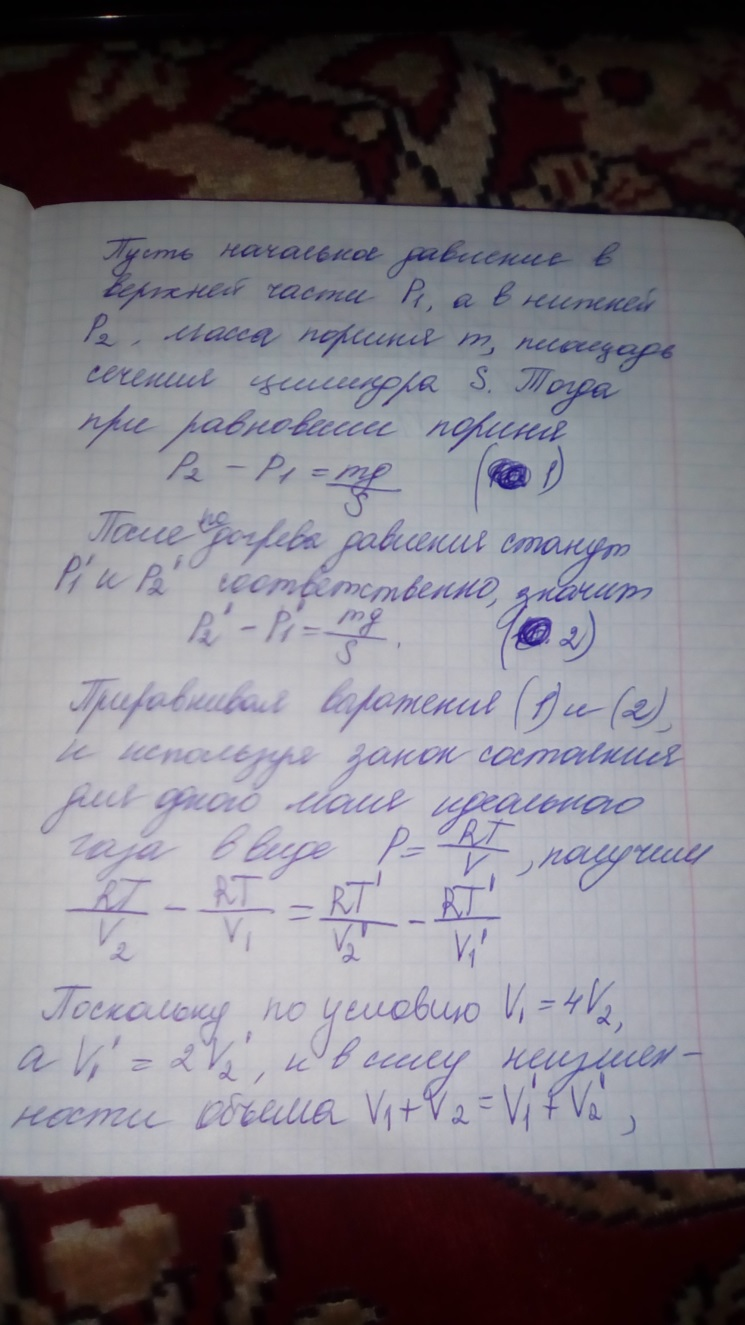 Пусть начальное давление в
верхней части P₁, а в нижней
P₂, масса поршня m, площадь
сечения цилиндра S. Тогда
при равновесии поршня
P₂ - P₁ = mg/S (1)
После подогрева давления станут
P₁' и P₂' соответственно, значит
P₂' - P₁' = mg/S. (2)
Приравнивая выражения (1) и (2),
и используя закон состояния
для одного моля идеального
газа в виде P = RT/V, получим
RT/V₂ - RT/V₁ = RT'/V₂' - RT'/V₁'
Поскольку по условию V₁ = 4V₂,
а V₁' = 2V₂', и в силу неизмен-
ности объема V₁ + V₂ = V₁' + V₂',